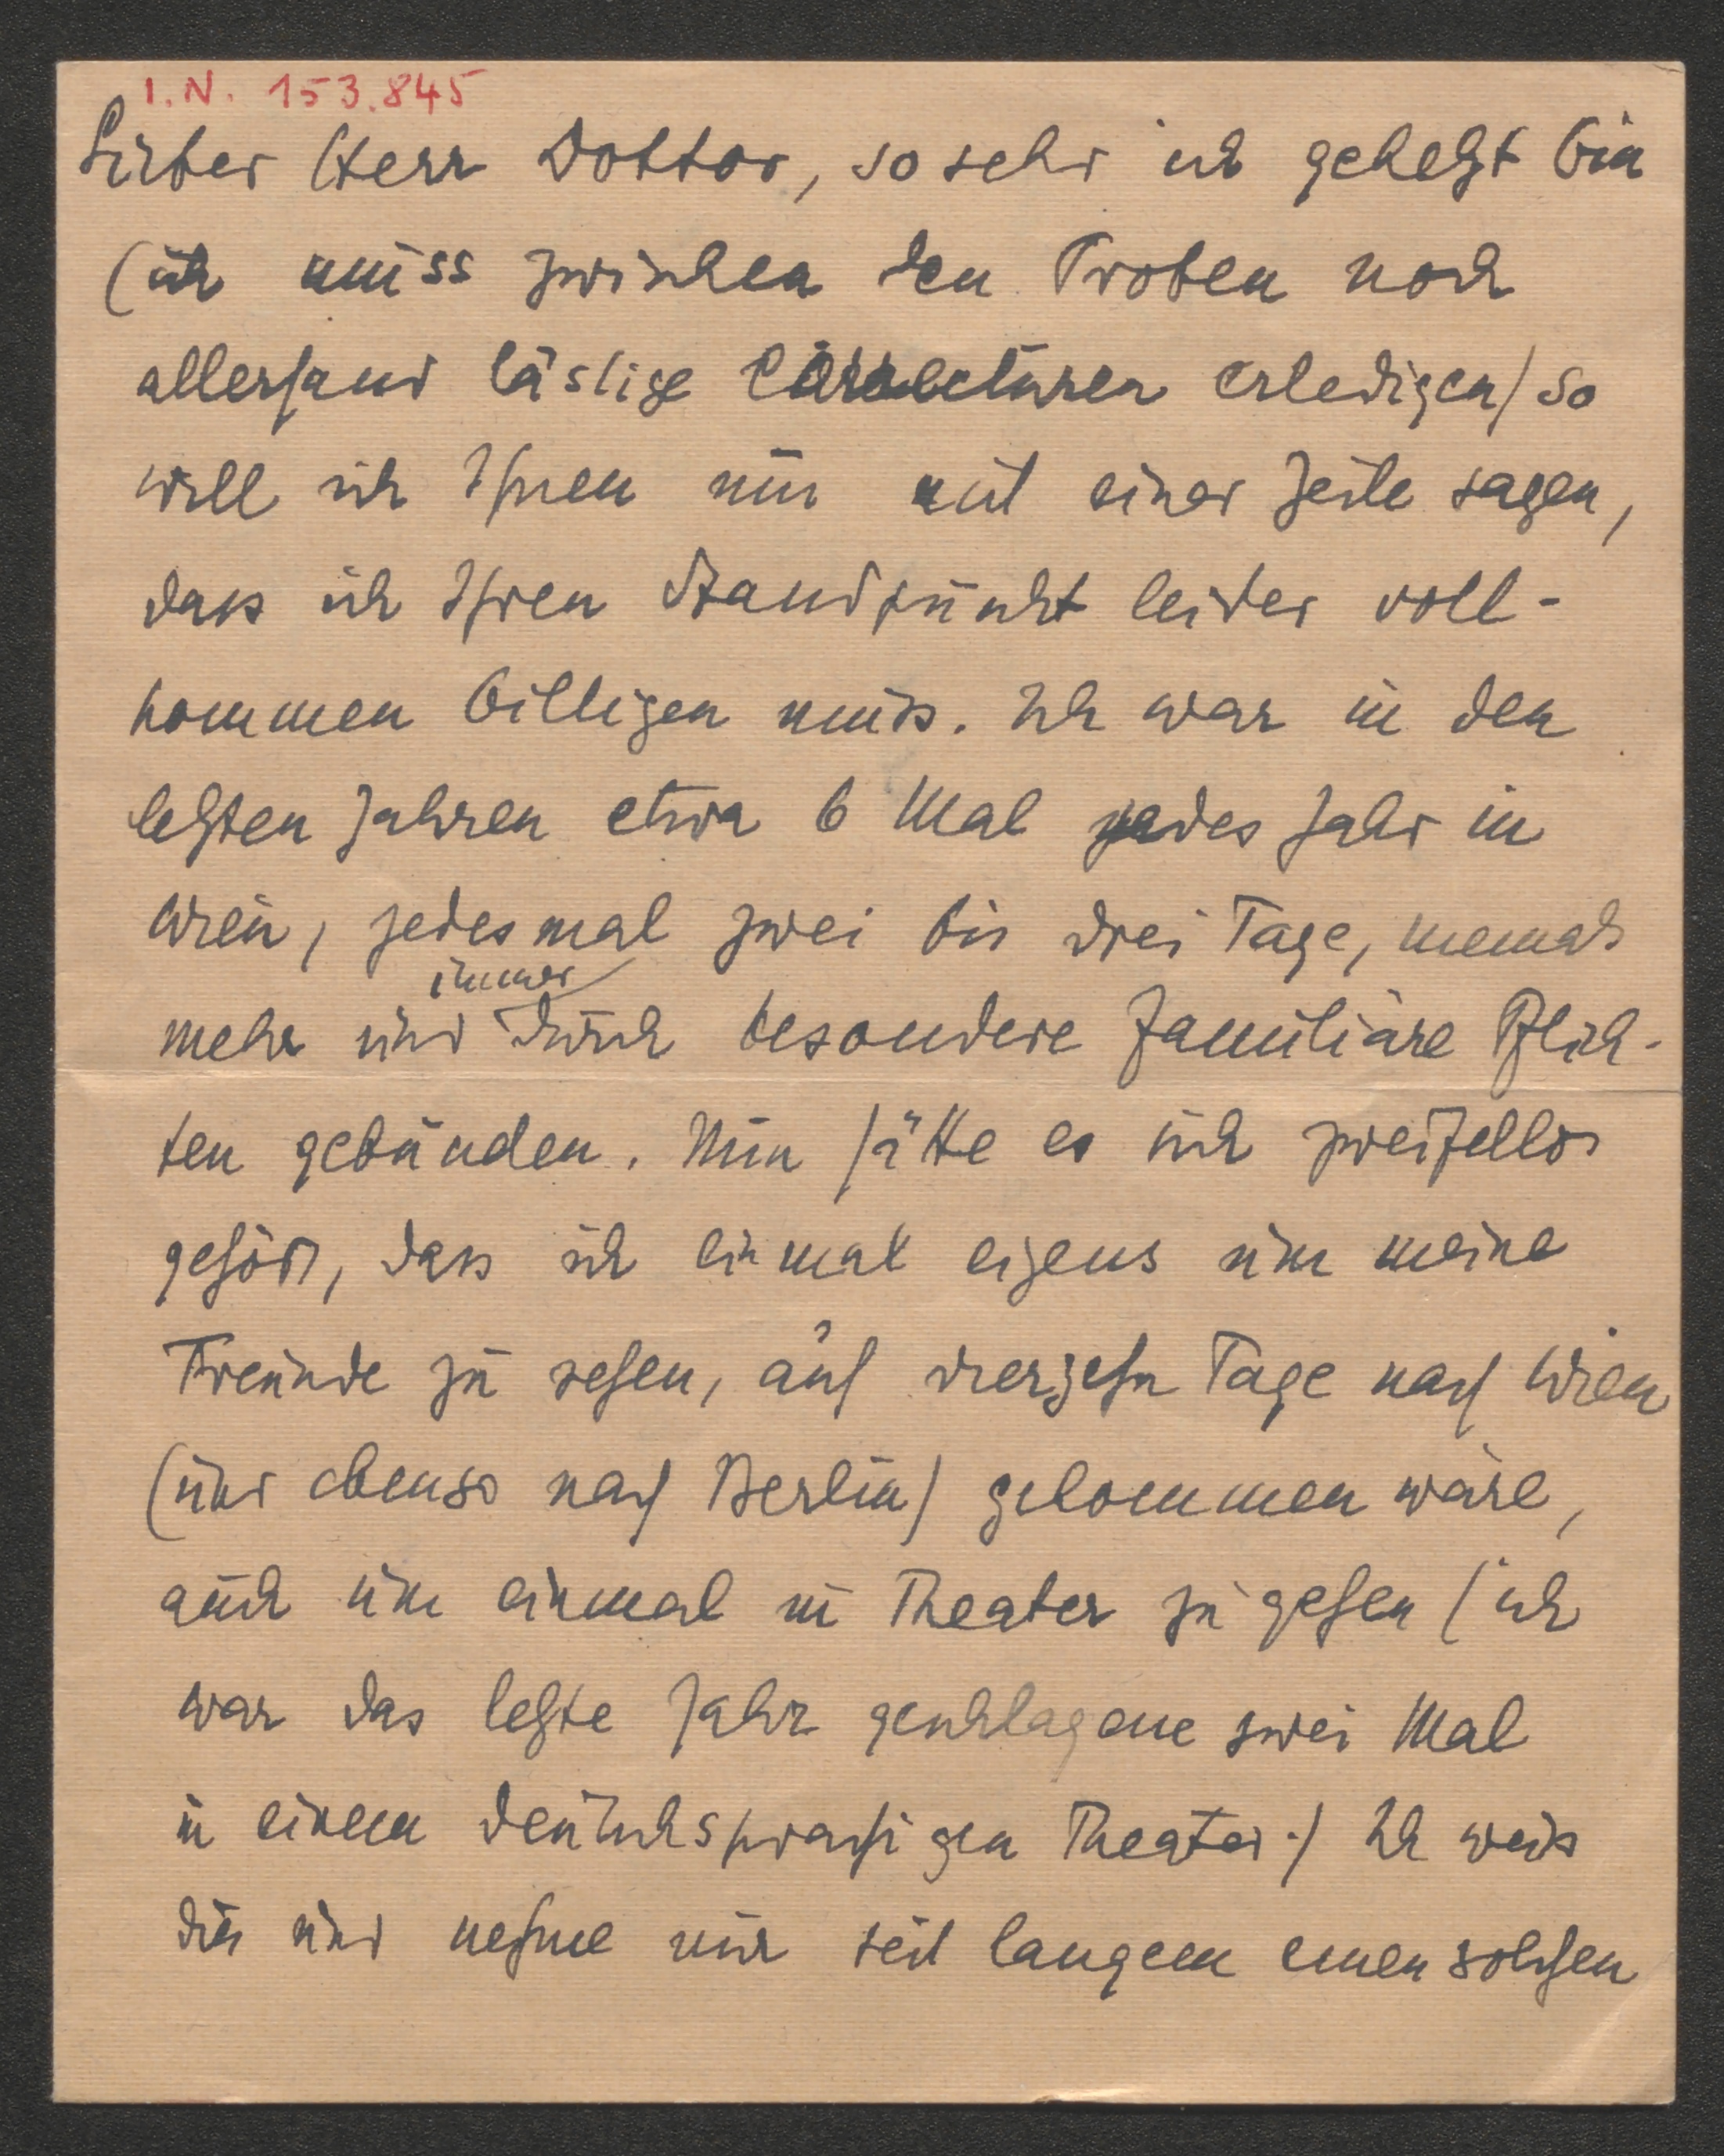 I.N. 153.845
Lieber Herr Doktor, so sehr ich gehetzt bin
(ich muss zwischen den Proben noch
allerhand lästige Correcturen erledigen) so
will ich Ihnen nur mit einer Zeile sagen,
dass ich Ihren Standpunkt leider voll-
kommen billigen muss. Ich war in den
letzten Jahren etwa 6 Mal jedes Jahr in
Wien, jedesmal zwei bis drei Tage, niemals
immer
mehr und durch besondere familiäre Pflich-
ten gebunden. Nun hätte es sich zweifellos
gehört, dass ich einmal eigens um meine
Freunde zu sehen, auf vierzehn Tage nach Wien
(und ebenso nach Berlin) gekommen wäre,
auch um einmal in Theater zu gehen (ich
war das letzte Jahr geschlagene zwei Mal
in einem deutschsprachigen Theater.) Ich weiss
dies und nehme mir seit langem einen solchen